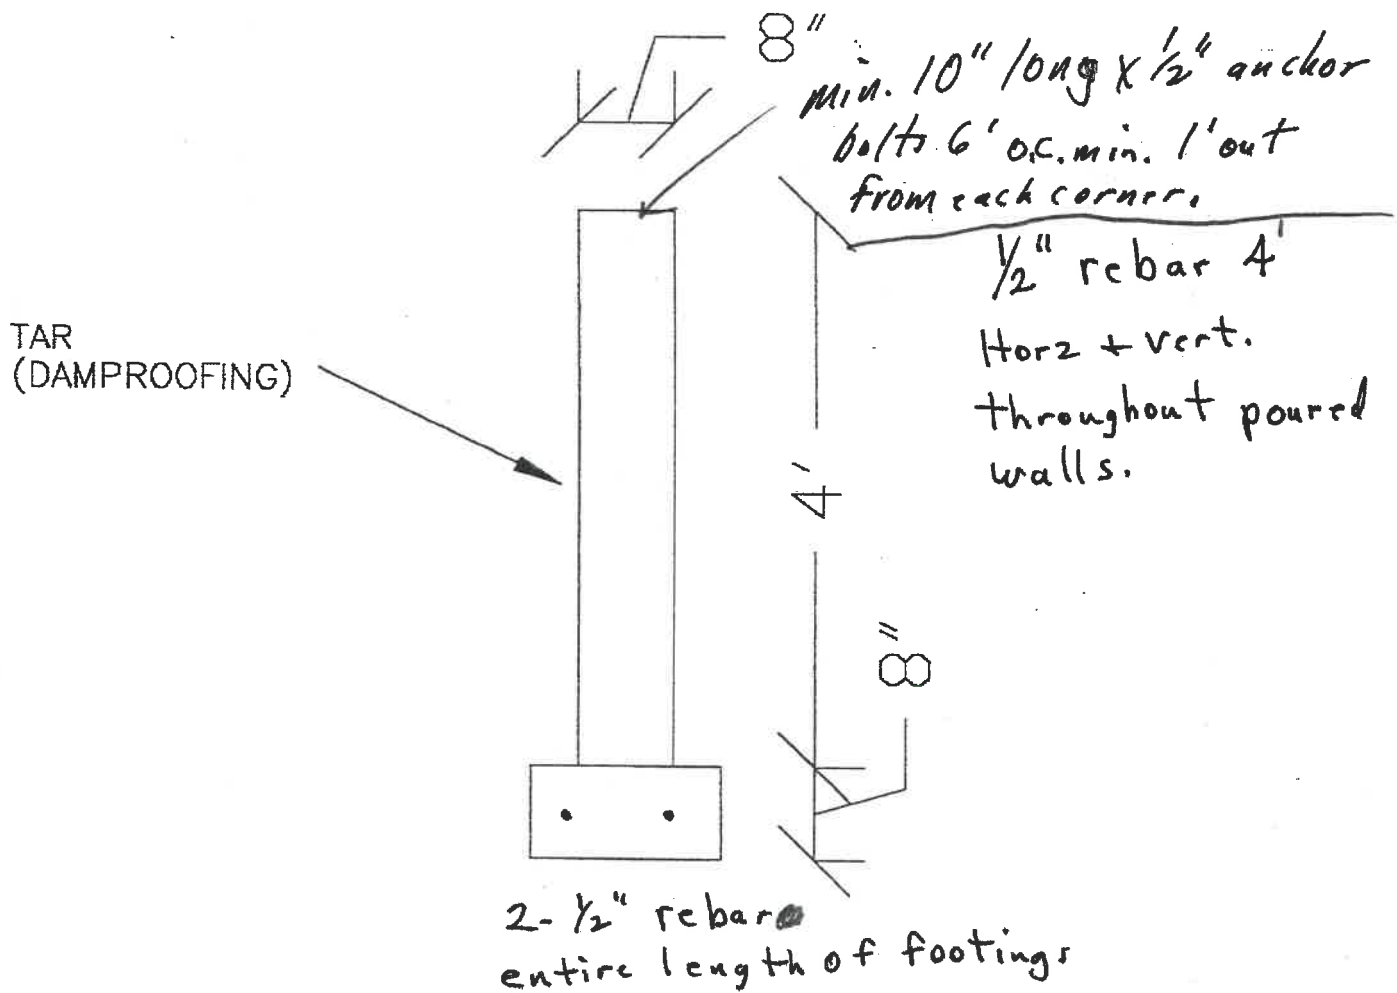 8"
min. 10" long x 1/2" anchor
bolts 6' o.c. min. 1' out
from each corner.
1/2" rebar 4'
Horz + vert.
throughout poured
walls.
TAR
(DAMPROOFING)
4'
8"
2- 1/2" rebar
entire length of footings